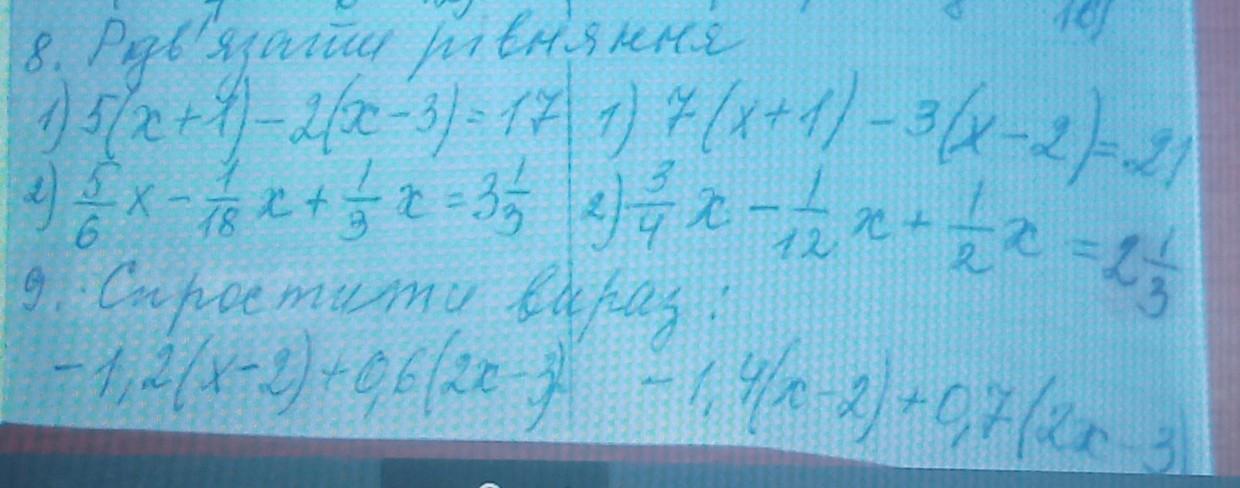 8. Розв'язати рівняння
1) 5(x+1)-2(x-3)=17 1) 7(x+1)-3(x-2)=21
2) 5/6 x - 1/18 x + 1/3 x = 3 1/3 2) 3/4 x - 1/12 x + 1/2 x = 2 1/3
9. Спростити вираз:
-1,2(x-2)+0,6(2x-3) -1,4(x-2)+0,7(2x-3)